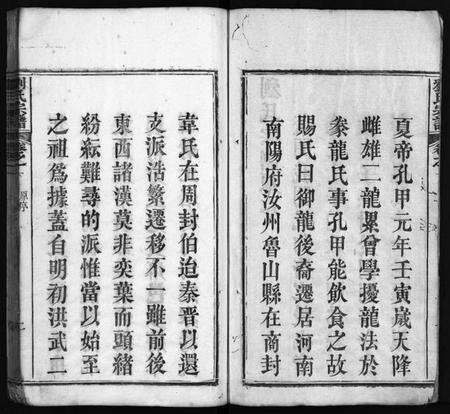 夏帝孔甲元年壬寅歲天降
雌雄二龍累曾學擾龍法於
豢龍氏事孔甲能飲食之故
賜氏曰御龍後裔遷居河南
南陽府汝州魯山縣在商封
韋氏在周封伯迨秦晉以還
支派浩繁遷移不一雖前後
東西諸漢莫非奕葉而頭緒
紛紜難尋的派惟當以始至
之祖爲據蓋自明初洪武二
劉氏宗譜